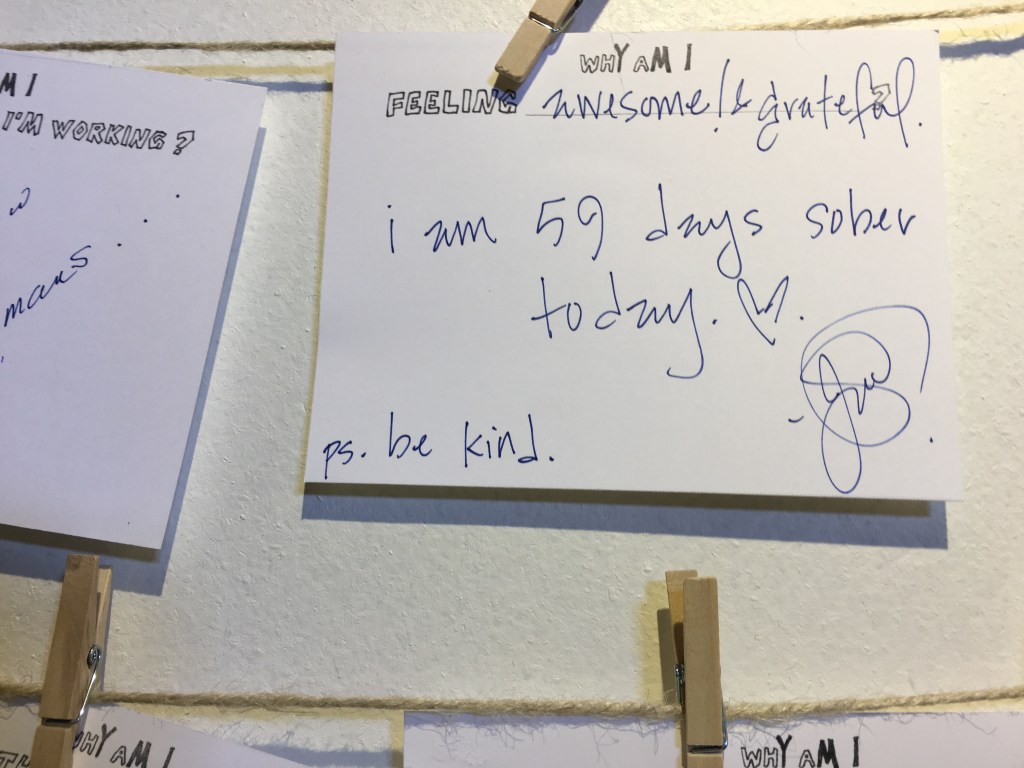 M I
I'M WORKING?
mans
WHY AM I
FEELING awesome! & grateful.?
i am 59 days sober
today.
ps. be kind.
WHY AM I
WHY AM I